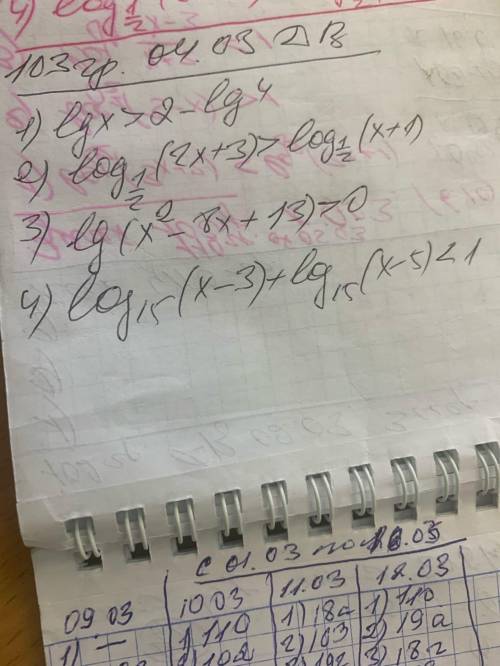 4) log 1/2 x-3
103 гр. 04.03 ДВ
1) lg x > 2 - lg 4
2) log 1/2 (2x+3) > log 1/2 (x+1)
3) lg (x² - 8x + 13) > 0
4) log₁₅ (x-3) + log₁₅ (x-5) < 1
с 01.03 по 03
09.03 10.03 11.03 12.03
1) — 1) 110 1) 18а 1) 110
2) 102 2) 103 2) 19а
3) 18г